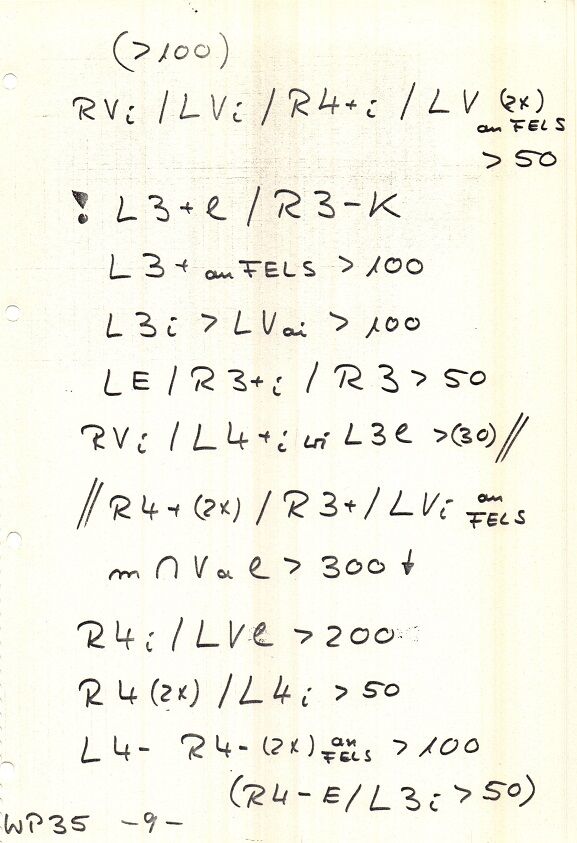 (>100)
RVi / LVi / R4+i / LV (2x) an FELS
>50
! L3+e / R3-K
L3+ an FELS >100
L3i > LVai > 100
LE / R3+i / R3 > 50
RVi / L4+i wi L3e >(30) //
// R4+ (2x) / R3+ / LVi an FELS
m ∩ Va e > 300 ↓
R4i / LVe > 200
R4 (2x) / L4i > 50
L4- R4- (2x) an FELS > 100
(R4-E/L3i > 50)
WP35 -9-